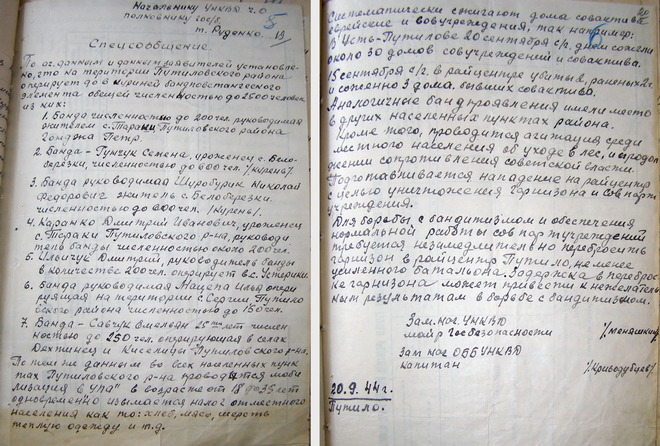 Начальнику УНКВД Ч.О.
полковнику гос/б
т. Руденко.
13
Спецсообщение.
По аг. данным и данным заявителей установле-
но, что на територии Путиловского района
оперирует до 8 куриней бандповстанческого
элемента общей численностью до 2500 человек
из них:
1. Банда численностью до 200 чел. руководимая
жителем с. Тораки Путиловского района
Гонджа Петр.
2. Банда - Гунчук Семена, уроженец с. Бело-
берёзки, численностью до 600 чел. /курень/.
3. Банда руководимая Шурубурик Николай
Федорович житель с. Белоберезки.
численностью до 600 чел. /курень/.
4. Каранко Дмитрий Иванович, уроженец
с. Тораки Путиловского р-на, руководи
тель банды численностью около 200 чел.
5. Ильичук Дмитрий, руководитель банды
в количестве 200 чел. оперирует в с. Устерики.
6. Банда руководимая Мацепа Илья опери
рующая на територии с. Сергии Путило
вского района численностью до 150 чел.
7. Банда - Савчук Емельян 25 лет числен
ностью до 250 чел. оперирующая в селах
Дихтинец и Киселицы Путиловского р-на.
По тем же данным во всех населенных пунк-
тах Путиловского р-на проводится моби
лизация в "УПА" в возрасте от 18 до 35 лет
одновременно взымается налог от местного
населения как то: хлеб, мясо, шерсть
теплую одежду и т.д.
20
Систематически сжигают дома совактива
еврейские и совучреждения, так например:
В Усть-Путилове 20 сентября с/г. днем сожгли
около 30 домов совучреждений и совактива.
15 сентября с/г. в райцентре убиты 2, раненых 2 г.
и сожженно 3 дома. бывших совактива.
Аналогичные бандпроявления имели место
в других населенных пунктах района.
Кроме того, проводится агитация среди
местного населения об уходе в лес, и продол
жении сопротивления советской власти.
Подготавливается нападение на райцентр
с целью уничтожения гарнизона и совпарт
учреждения.
Для борьбы с бандитизмом и обеспечения
нормальной работы совпартучреждений
требуется незамедлительно перебросить
гарнизон в райцентр Путило, не менее
усиленного батальона. Задержка в переброс
ке гарнизона может привести к нежелатель
ным результатам в борьбе с бандитизмом.
Зам. нач. УНКВД
майор госбезопасности
Зам нач ОББ УНКВД
капитан
/Криводубцев/
20.9.44 г.
Путило.